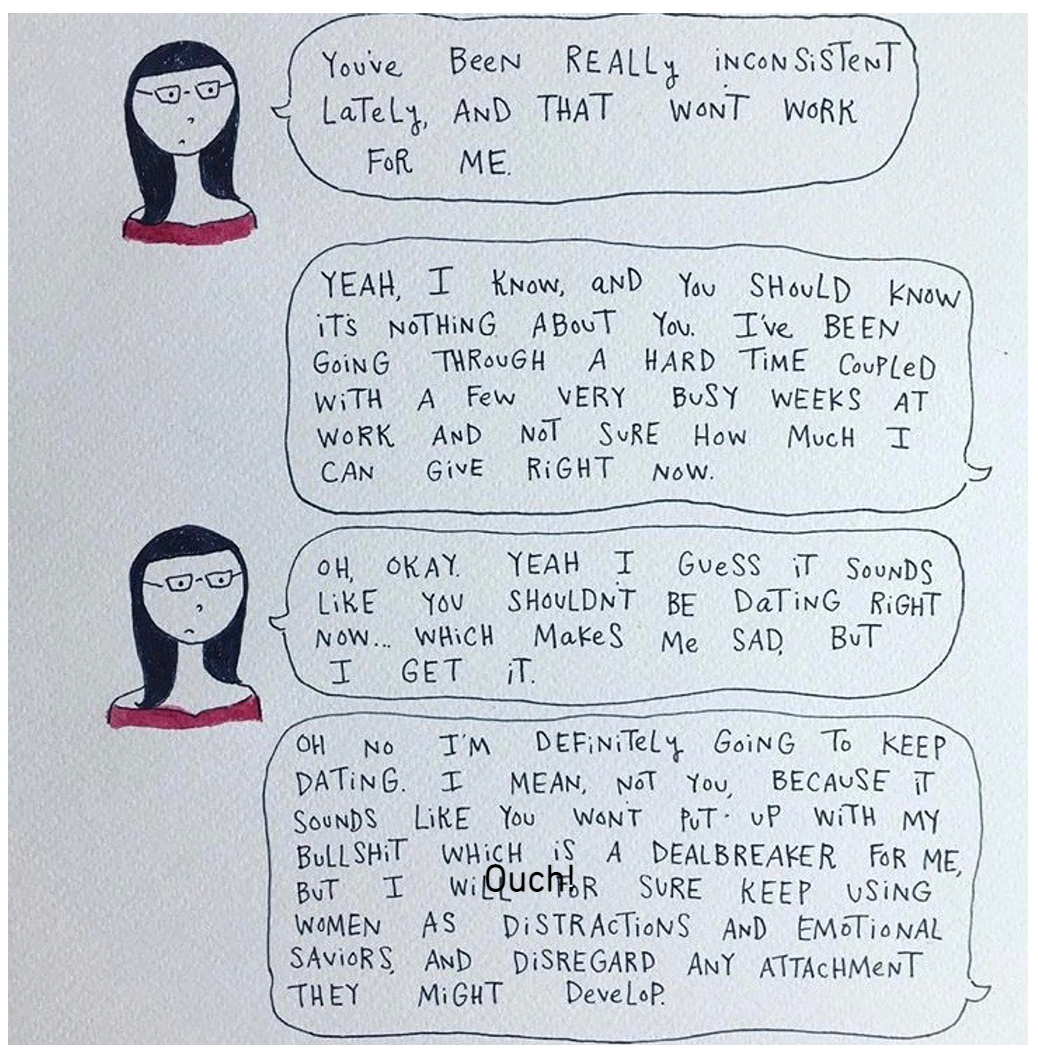 You've BeeN REALLy iNCONSiSTeNT
LaTeLy, AND THAT WONT WORK
FOR ME.
YEAH, I KNOW, aND You SHOULD KNOW
iT'S NOTHiNG ABOUT You. I've BEEN
GOiNG THROUGH A HARD TiME COUPLeD
WiTH A Few VERY BUSY WEEKS AT
WORK AND NOT SURE HOW MUCH I
CAN GiVE RiGHT NOW.
OH, OKAY. YEAH I GUeSS iT SOUNDS
LiKE YOU SHOULDNT BE DaTiNG RiGHT
NOW... WHiCH MakeS Me SAD, BUT
I GET iT.
OH NO I'M DEFiNiTeLy GOiNG TO KEEP
DATiNG. I MEAN, NOT You, BECAUSE iT
SOUNDS LiKE YOU WONT PUT UP WiTH MY
BULLSHiT WHiCH iS A DEALBREAKER FOR ME,
BUT I WiLL FOR SURE KEEP USiNG
Ouch!
WOMEN AS DiSTRACTiONS AND EMOTiONAL
SAViORS, AND DiSREGARD ANY ATTACHMeNT
THEY MiGHT DeveLOP.